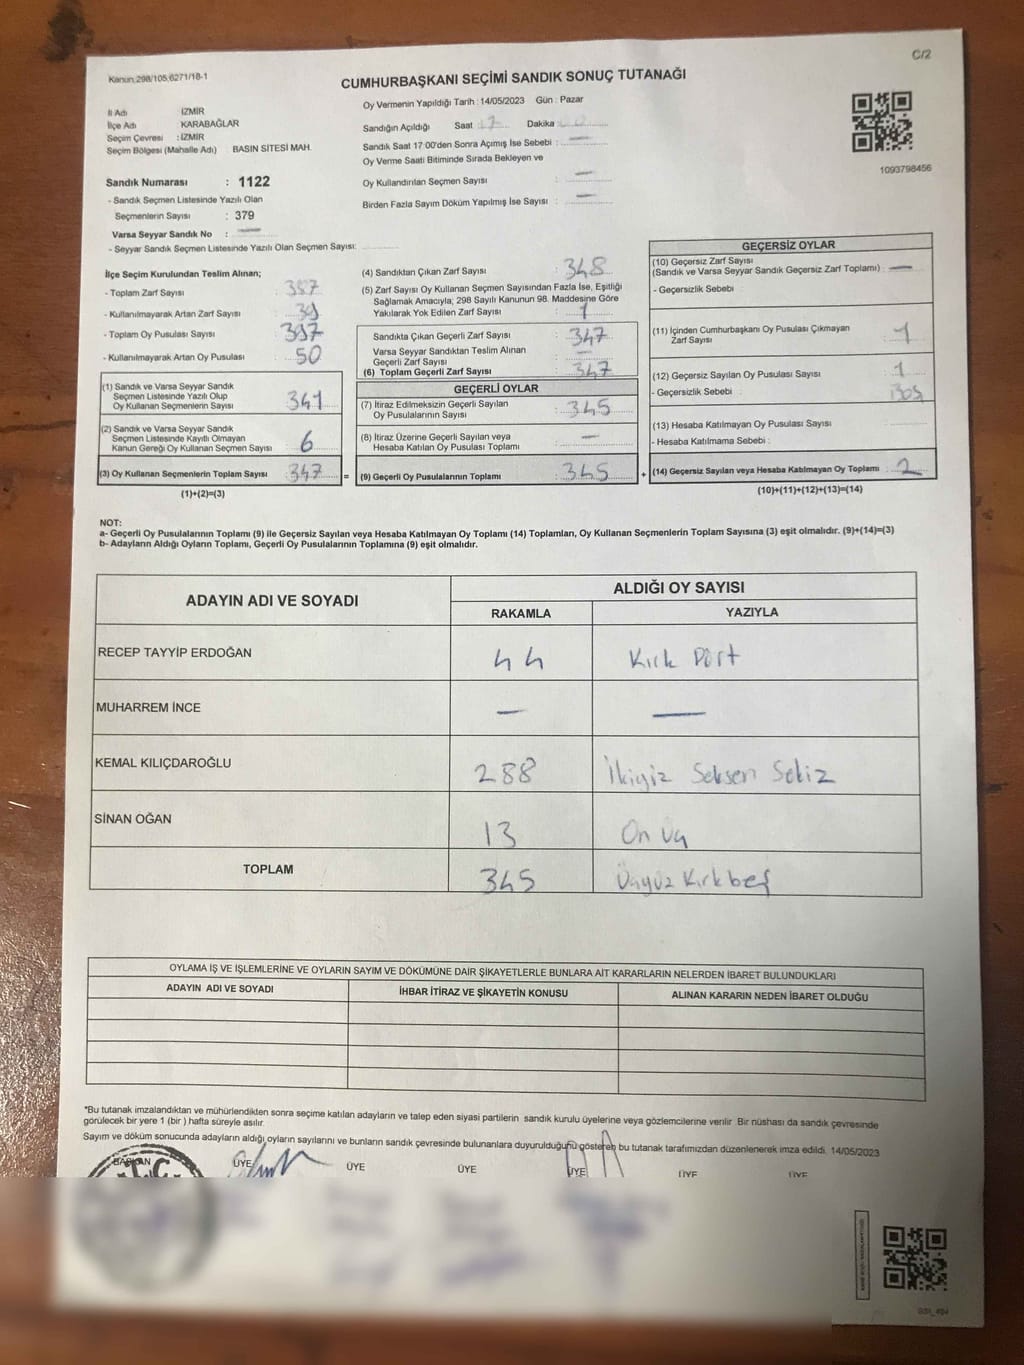 C/2
Kanun:298/105,6271/18-1
CUMHURBAŞKANI SEÇİMİ SANDIK SONUÇ TUTANAĞI
İl Adı : İZMİR
İlçe Adı : KARABAĞLAR
Seçim Çevresi : İZMİR
Seçim Bölgesi (Mahalle Adı) BASIN SİTESİ MAH.
Sandık Numarası : 1122
- Sandık Seçmen Listesinde Yazılı Olan
Seçmenlerin Sayısı : 379
Varsa Seyyar Sandık No : —
- Seyyar Sandık Seçmen Listesinde Yazılı Olan Seçmen Sayısı:
Oy Vermenin Yapıldığı Tarih : 14/05/2023 Gün : Pazar
Sandığın Açıldığı Saat : 17 Dakika :
Sandık Saat 17:00'den Sonra Açımış İse Sebebi : —
Oy Verme Saati Bitiminde Sırada Bekleyen ve
Oy Kullandırılan Seçmen Sayısı : —
Birden Fazla Sayım Döküm Yapılmış İse Sayısı : —
1093798456
İlçe Seçim Kurulundan Teslim Alınan;
- Toplam Zarf Sayısı : 387
- Kullanılmayarak Artan Zarf Sayısı : 39
- Toplam Oy Pusulası Sayısı : 397
- Kullanılmayarak Artan Oy Pusulası : 50
(1) Sandık ve Varsa Seyyar Sandık
Seçmen Listesinde Yazılı Olup
Oy Kullanan Seçmenlerin Sayısı : 341
(2) Sandık ve Varsa Seyyar Sandık
Seçmen Listesinde Kayıtlı Olmayan
Kanun Gereği Oy Kullanan Seçmen Sayısı : 6
(3) Oy Kullanan Seçmenlerin Toplam Sayısı : 347 =
(1)+(2)=(3)
(4) Sandıktan Çıkan Zarf Sayısı : 348
(5) Zarf Sayısı Oy Kullanan Seçmen Sayısından Fazla İse, Eşitliği
Sağlamak Amacıyla; 298 Sayılı Kanunun 98. Maddesine Göre
Yakılarak Yok Edilen Zarf Sayısı : 1
Sandıkta Çıkan Geçerli Zarf Sayısı : 347
Varsa Seyyar Sandıktan Teslim Alınan
Geçerli Zarf Sayısı : —
(6) Toplam Geçerli Zarf Sayısı : 347
GEÇERLİ OYLAR
(7) İtiraz Edilmeksizin Geçerli Sayılan
Oy Pusulalarının Sayısı : 345
(8) İtiraz Üzerine Geçerli Sayılan veya
Hesaba Katılan Oy Pusulası Toplamı : —
(9) Geçerli Oy Pusulalarının Toplamı : 345 +
GEÇERSİZ OYLAR
(10) Geçersiz Zarf Sayısı
(Sandık ve Varsa Seyyar Sandık Geçersiz Zarf Toplamı) : —
- Geçersizlik Sebebi :
(11) İçinden Cumhurbaşkanı Oy Pusulası Çıkmayan
Zarf Sayısı : 1
(12) Geçersiz Sayılan Oy Pusulası Sayısı : 1
- Geçersizlik Sebebi : Boş
(13) Hesaba Katılmayan Oy Pusulası Sayısı :
- Hesaba Katılmama Sebebi :
(14) Geçersiz Sayılan veya Hesaba Katılmayan Oy Toplamı : 2
(10)+(11)+(12)+(13)=(14)
NOT:
a- Geçerli Oy Pusulalarının Toplamı (9) ile Geçersiz Sayılan veya Hesaba Katılmayan Oy Toplamı (14) Toplamları, Oy Kullanan Seçmenlerin Toplam Sayısına (3) eşit olmalıdır. (9)+(14)=(3)
b- Adayların Aldığı Oyların Toplamı, Geçerli Oy Pusulalarının Toplamına (9) eşit olmalıdır.
ADAYIN ADI VE SOYADI ALDIĞI OY SAYISI
RAKAMLA YAZIYLA
RECEP TAYYİP ERDOĞAN 44 Kırk Dört
MUHARREM İNCE — —
KEMAL KILIÇDAROĞLU 288 İkiyüz Seksen Sekiz
SİNAN OĞAN 13 On üç
TOPLAM 345 Üçyüz Kırkbeş
OYLAMA İŞ VE İŞLEMLERİNE VE OYLARIN SAYIM VE DÖKÜMÜNE DAİR ŞİKAYETLERLE BUNLARA AİT KARARLARIN NELERDEN İBARET BULUNDUKLARI
ADAYIN ADI VE SOYADI İHBAR İTİRAZ VE ŞİKAYETİN KONUSU ALINAN KARARIN NEDEN İBARET OLDUĞU
*Bu tutanak imzalandıktan ve mühürlendikten sonra seçime katılan adayların ve talep eden siyasi partilerin sandık kurulu üyelerine veya gözlemcilerine verilir. Bir nüshası da sandık çevresinde
görülecek bir yere 1 (bir ) hafta süreyle asılır.
Sayım ve döküm sonucunda adayların aldığı oyların sayılarını ve bunların sandık çevresinde bulunanlara duyurulduğunu gösteren bu tutanak tarafımızdan düzenlenerek imza edildi. 14/05/2023
BAŞKAN ÜYE ÜYE ÜYE ÜYE ÜYE ÜYE